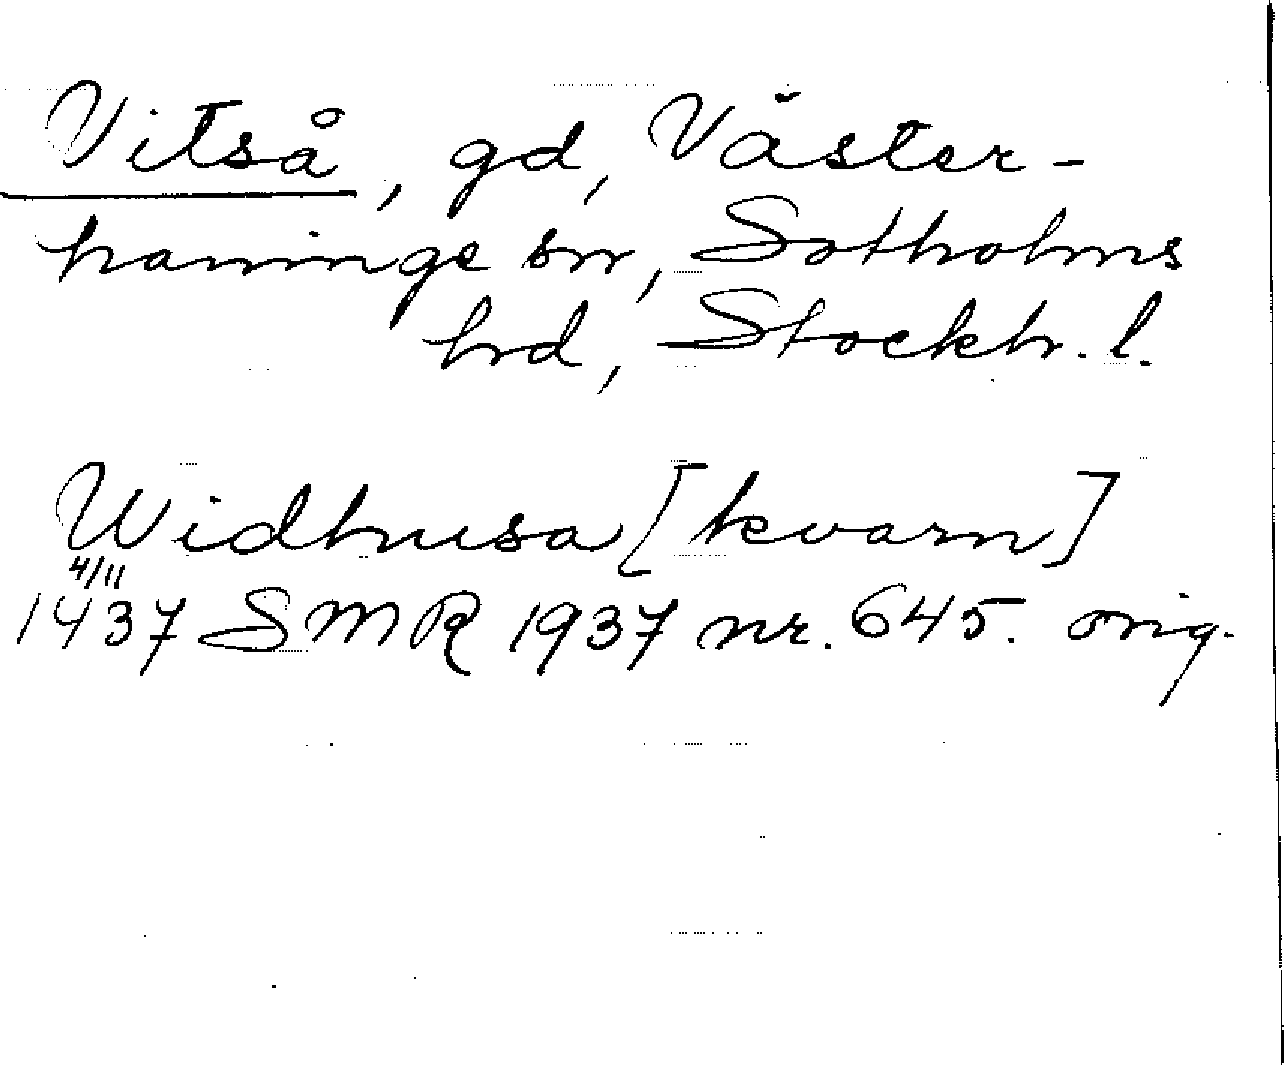 Vitså, gd, Väster-
haninge sn, Sotholms
hrd, Stockh. l.
Widhusa [kvarn]
4/11
1437 SMR 1937 nr. 645. orig.